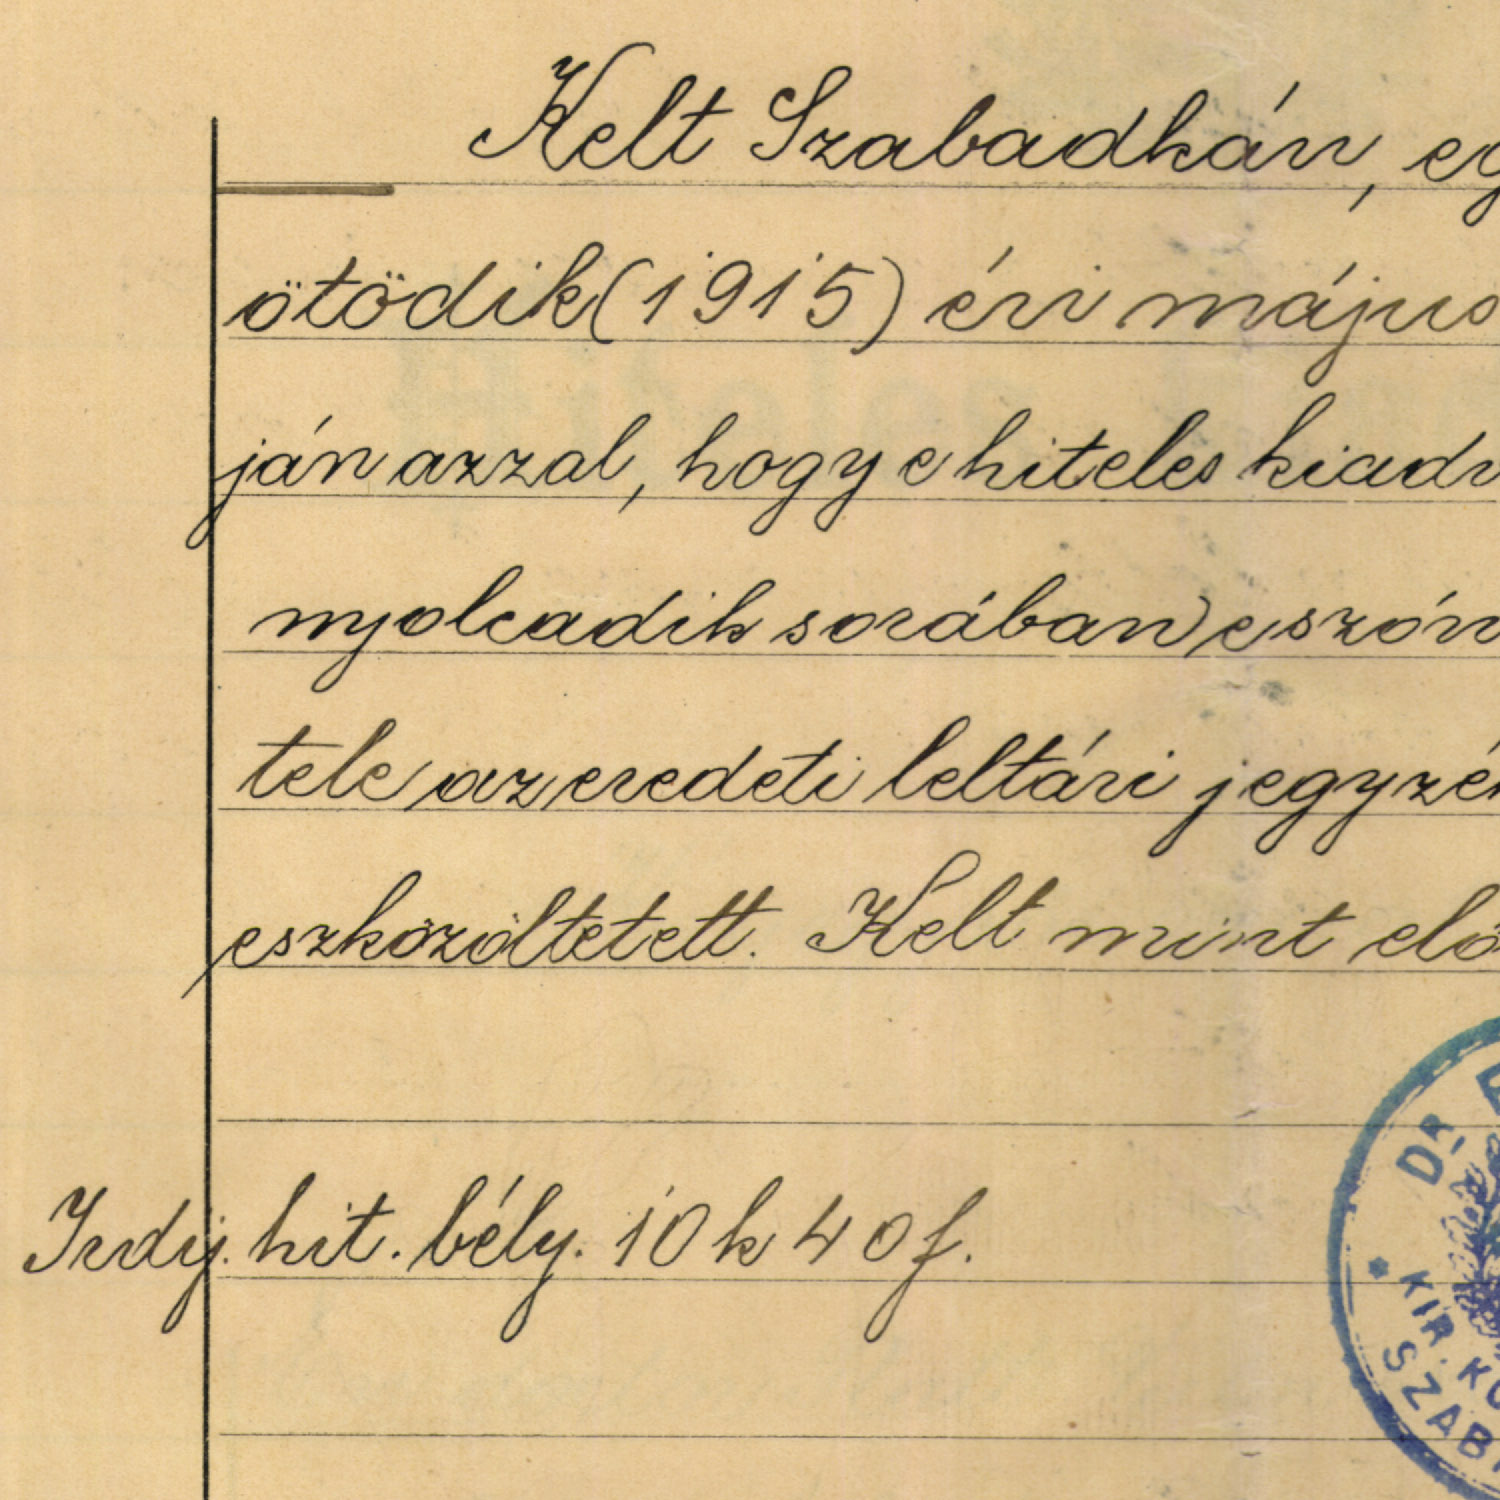 Kelt Szabadkán, eg
ötödik (1915) évi május
ján azzal, hogy e hiteles kiadv
nyolcadik sorában e szón
tele az eredeti leltári jegyzék
eszközöltetett. Kelt mint elő
Irdíj. hit. bély. 10 k 40 f.
DR.
KIR. KÖ
SZAB